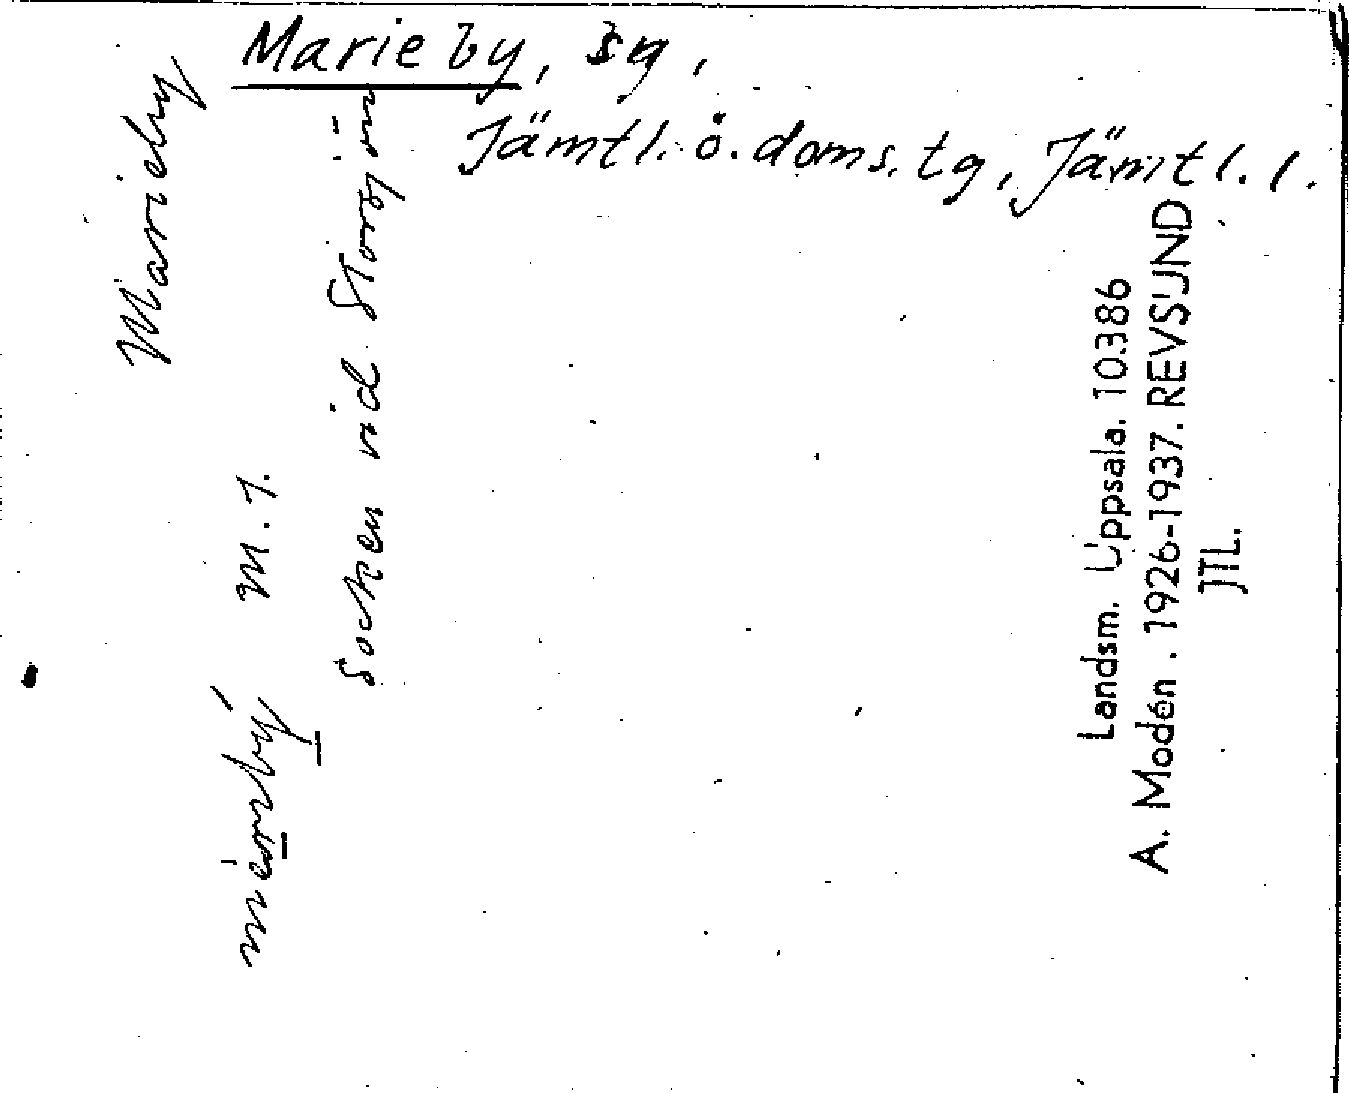 Marieby, sn,
Jämtl. ö. doms. tg, Jämtl. l.
Marieby
m. 1.
Socken vid Storsjön
Landsm. Uppsala. 10386
A. Modén. 1926-1937. REVSUND
JTL.